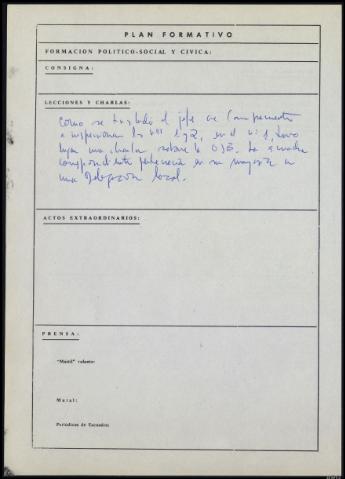 PLAN FORMATIVO
FORMACION POLITICO-SOCIAL Y CIVICA:
CONSIGNA:
LECCIONES Y CHARLAS:
Como se trasladó el jefe de Campamento
a inspeccionar los nos 1 y 2, en el nº 1, tuvo
lugar una charla sobre la OJE. La escuadra
correspondiente pertenecia en su mayoria a
una Delegacion local.
ACTOS EXTRAORDINARIOS:
PRENSA:
"Mastil" volante:
Mural:
Periodicos de Escuadra: